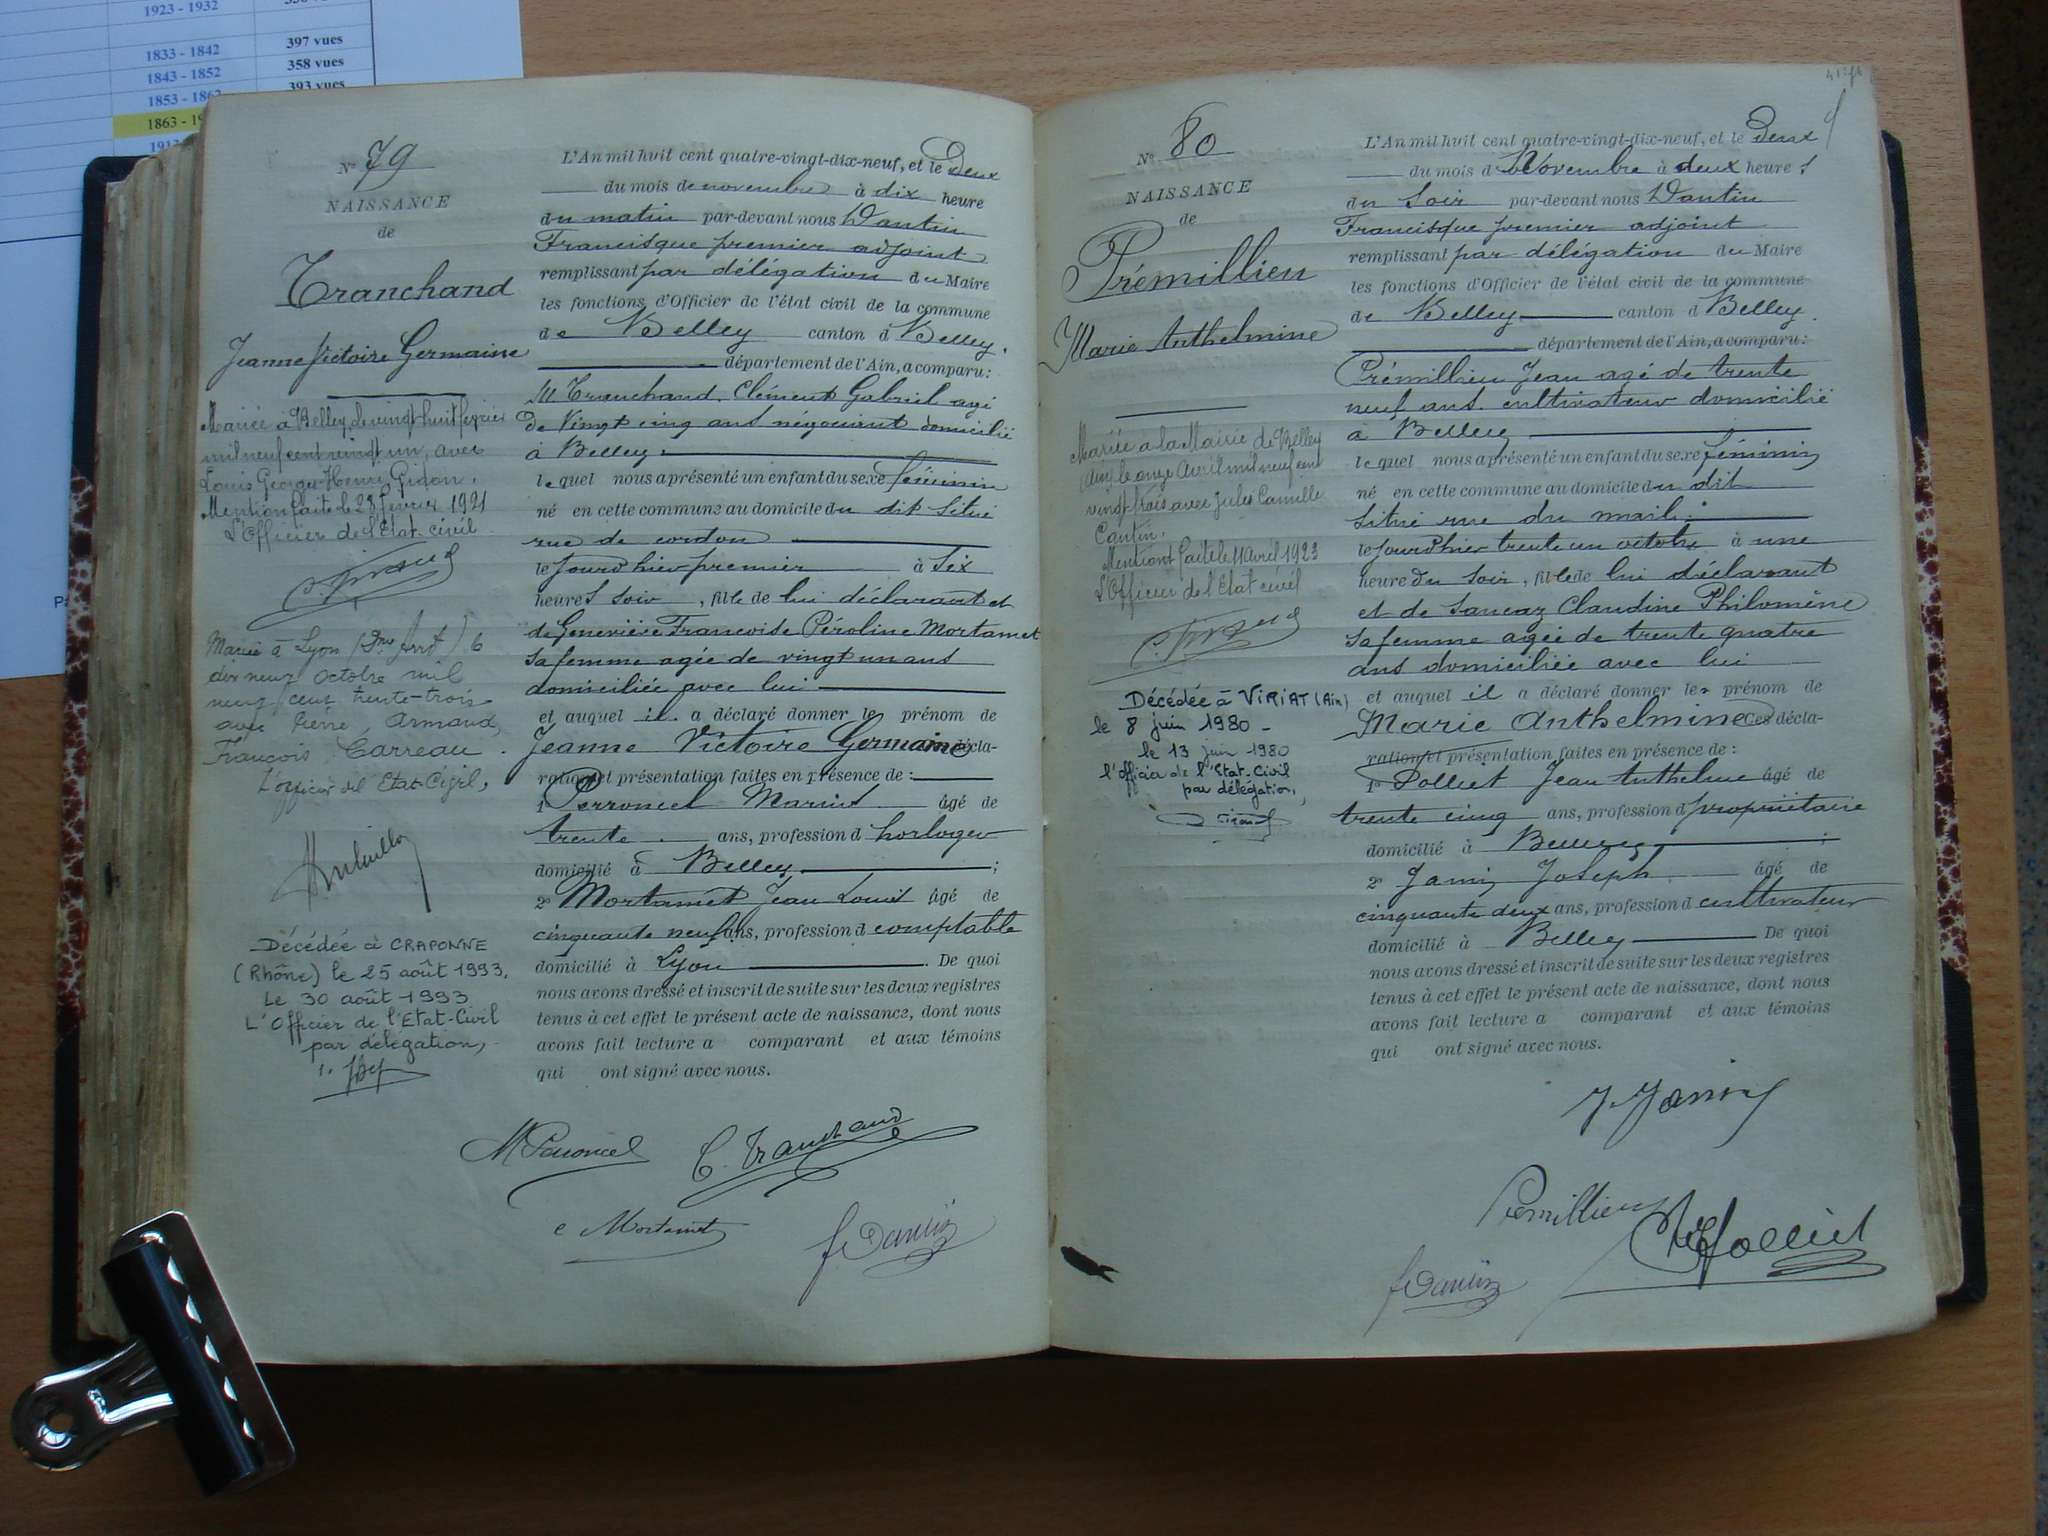 1923 - 1932
1833 - 1842 397 vues
1843 - 1852 358 vues
1853 - 1862 393 vues
1863 - 1
N° 79
NAISSANCE
de
Tranchand
Jeanne Victoire Germaine
Mariée à Belley, le vingt huit février
mil neuf cent vingt un, avec
Louis Georges Henri Gidon.
Mention faite le 28 février 1921
L'Officier de l'Etat civil
Mariée à Lyon (2me Arrt) le
dix neuf Octobre mil
neuf cent trente-trois
avec Pierre, Armand,
François Carreau.
L'officier del Etat-Civil,
Décédée à CRAPONNE
(Rhône) le 25 août 1993.
Le 30 août 1993
L'Officier de l'Etat-Civil
par délégation,
L'An mil huit cent quatre-vingt-dix-neuf, et le Deux
du mois de novembre à dix heure
du matin par-devant nous Dantin
Francisque premier adjoint
remplissant par délégation du Maire
les fonctions d'Officier de l'état civil de la commune
de Belley canton d Belley.
département de l'Ain, a comparu:
M Tranchand, Clément Gabriel agé
de Vingt cinq ans négociant domicilié
à Belley
lequel nous a présenté un enfant du sexe féminin
né en cette commune au domicile du dit situé
rue de cordon
le jourd'hier premier à Six
heures soir, fille de lui déclarant et
de Geneviève Françoise Péroline Mortamet
sa femme agée de vingt un ans
domiciliée avec lui
et auquel il a déclaré donner le prénom de
Jeanne Victoire Germaine Ces décla-
ration et présentation faites en présence de :
1° Perroncel Marius âgé de
trente ans, profession d horloger
domicilié à Belley ;
2° Mortamet Jean Louis âgé de
cinquante neuf ans, profession d comptable
domicilié à Lyon . De quoi
nous avons dressé et inscrit de suite sur les deux registres
tenus à cet effet le présent acte de naissance, dont nous
avons fait lecture a comparant et aux témoins
qui ont signé avec nous.
M Perroncel C. Tranchand
Mortamet f Dantin
N° 80
NAISSANCE
de
Prémillieu
Marie Anthelmine
Mariée à la Mairie de Belley
(Ain) le onze Avril mil neuf cent
vingt trois avec Jules Camille
Cantin.
Mention faite le 11 avril 1923
L'Officier de l'Etat civil
Décédée à VIRIAT (Ain)
le 8 juin 1980 -
le 13 juin 1980
l'officier de l'Etat-Civil
par délégation,
L'An mil huit cent quatre-vingt-dix-neuf, et le Deux
du mois d Novembre à deux heure s
du Soir par-devant nous Dantin
Francisque premier adjoint
remplissant par délégation du Maire
les fonctions d'Officier de l'état civil de la commune
de Belley canton d Belley.
département de l'Ain, a comparu:
Prémillieu Jean agé de trente
neuf ans cultivateur domicilié
à Belley
lequel nous a présenté un enfant du sexe féminin
né en cette commune au domicile du dit
situé rue du mail
le jourd'hier trente un octobre à une
heure du soir, fille de lui déclarant
et de Sancaz Claudine Philomène
sa femme agée de trente quatre
ans domiciliée avec lui
et auquel il a déclaré donner les prénom de
Marie Anthelmine Ces décla-
ration et présentation faites en présence de :
1° Polliet Jean Anthelme âgé de
trente cinq ans, profession d propriétaire
domicilié à Belley ;
2° Jamin Joseph âgé de
cinquante deux ans, profession d cultivateur
domicilié à Belley De quoi
nous avons dressé et inscrit de suite sur les deux registres
tenus à cet effet le présent acte de naissance, dont nous
avons fait lecture a comparant et aux témoins
qui ont signé avec nous.
J. Jamin
Prémillieu
f Dantin